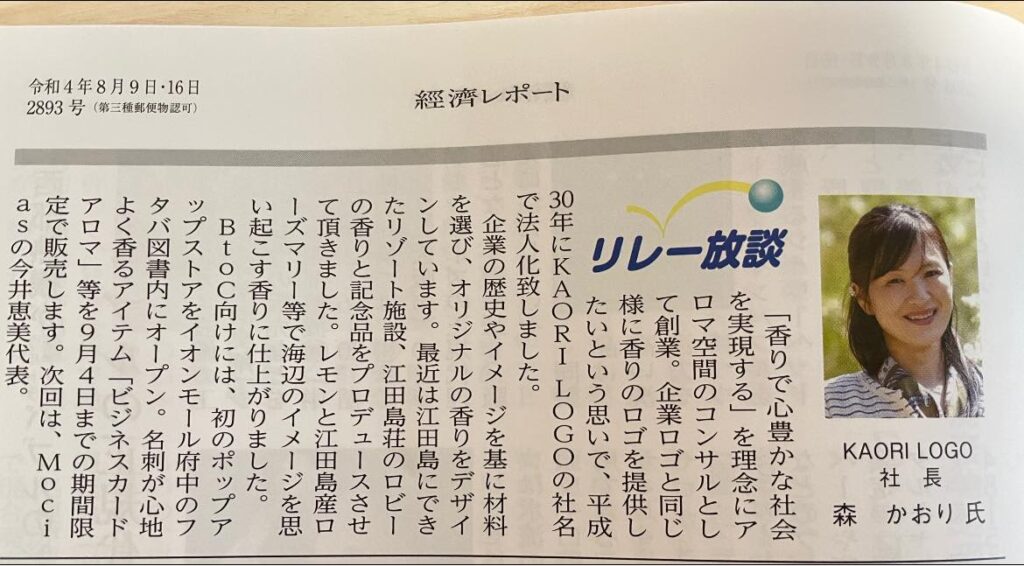 令和4年8月9日・16日
2893号（第三種郵便物認可）
經濟レポート
リレー放談
KAORI LOGO
社長
森　かおり氏
「香りで心豊かな社会
を実現する」を理念にア
ロマ空間のコンサルとし
て創業。企業ロゴと同じ
様に香りのロゴを提供し
たいという思いで、平成
30年にKAORI LOGOの社名
で法人化致しました。
企業の歴史やイメージを基に材料
を選び、オリジナルの香りをデザイ
ンしています。最近は江田島にでき
たリゾート施設、江田島荘のロビー
の香りと記念品をプロデュースさせ
て頂きました。レモンと江田島産ロ
ーズマリー等で海辺のイメージを思
い起こす香りに仕上がりました。
BtoC向けには、初のポップア
ップストアをイオンモール府中のフ
タバ図書内にオープン。名刺が心地
よく香るアイテム「ビジネスカード
アロマ」等を9月4日までの期間限
定で販売します。次回は、Moci
asの今井恵美代表。